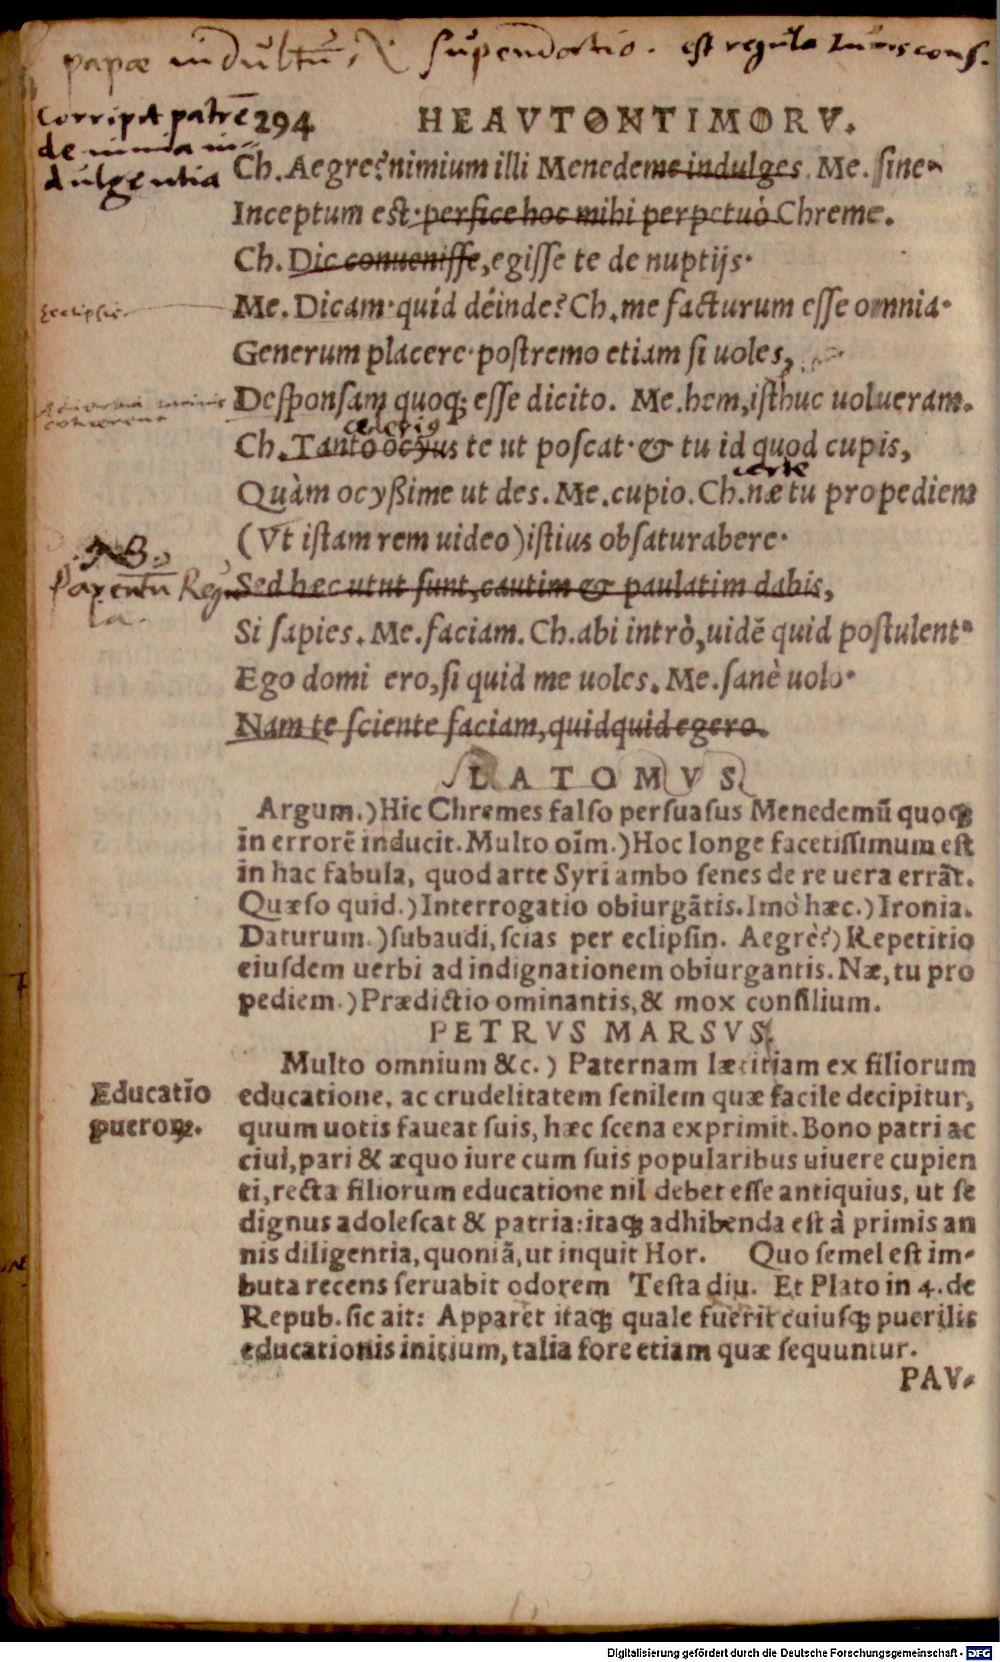 papæ indultū,
est regula Iuuisconſ.
Corripit patrē
de nimia in-
dulgentia
294 HEAVTONTIMORV.
Ch. Aegre? nimium illi Menedeme indulges. Me. ſine.
Inceptum eſt. perfice hoc mihi perpetuò Chreme.
Ch. Dic conueniſſe, egiſſe te de nuptijs.
Eclipſis
Me. Dicam. quid deinde? Ch. me facturum eſſe omnia.
Generum placere. poſtremo etiam ſi uoles,
Deſponſam quoq; eſſe dicito. Me. hem, iſthuc uolueram.
celerius
Ch. Tanto ocyus te ut poſcat. & tu id quod cupis,
certe
Quàm ocyßime ut des. Me. cupio. Ch. næ tu propediem
(Vt iſtam rem uideo) iſtius obſaturabere.
NB.
Parentū Regu-
la.
Sed hæc utut ſunt, cautim & paulatim dabis,
Si ſapies. Me. faciam. Ch. abi intrò, uidē quid poſtulent.
Ego domi ero, ſi quid me uoles. Me. ſanè uolo.
Nam te ſciente faciam, quidquid egero.
LATOMVS
Argum.) Hic Chremes falſo perſuaſus Menedemū quoq;
in errorē inducit. Multo oīm.) Hoc longe facetiſſimum eſt
in hac fabula, quod arte Syri ambo ſenes de re uera errāt.
Quæſo quid.) Interrogatio obiurgātis. Imò hæc.) Ironia.
Daturum.) ſubaudi, ſcias per eclipſin. Aegrè?) Repetitio
eiuſdem uerbi ad indignationem obiurgantis. Næ, tu pro
pediem.) Prædictio ominantis, & mox conſilium.
PETRVS MARSVS.
Multo omnium &c.) Paternam lætitiam ex filiorum
Educatio
puerorꝝ.
educatione, ac crudelitatem ſenilem quæ facile decipitur,
quum uotis faueat ſuis, hæc ſcena exprimit. Bono patri ac
ciui, pari & æquo iure cum ſuis popularibus uiuere cupien
ti, recta filiorum educatione nil debet eſſe antiquius, ut ſe
dignus adoleſcat & patria: itaq; adhibenda eſt à primis an
nis diligentia, quoniā, ut inquit Hor. Quo ſemel eſt im-
buta recens ſeruabit odorem Teſta diu. Et Plato in 4. de
Repub. ſic ait: Apparet itaq; quale fuerit cuiuſq; puerilis
educationis initium, talia fore etiam quæ ſequuntur.
PAV-
Digitalisierung gefördert durch die Deutsche Forschungsgemeinschaft - DFG